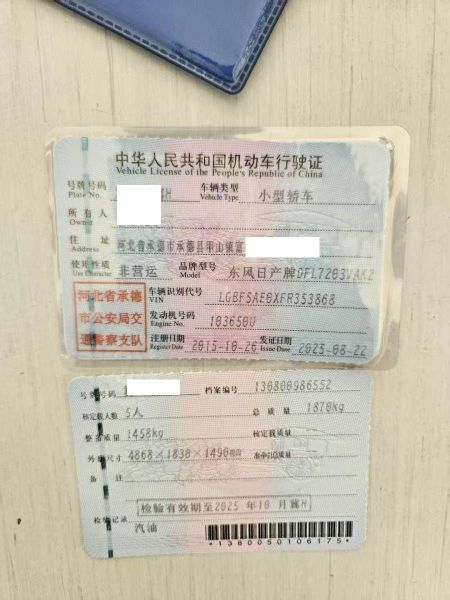 中华人民共和国机动车行驶证
Vehicle License of the People's Republic of China
号牌号码 Plate No. H 车辆类型 Vehicle Type 小型轿车
所有人 Owner
住址 Address 河北省承德市承德县甲山镇富
使用性质 Use Character 非营运 品牌型号 Model 东风日产牌DFL7203VAK2
河北省承德市公安局交通警察支队
车辆识别代号 VIN LGBFSAE0XFR353868
发动机号码 Engine No. 103650U
注册日期 Register Date 2015-10-26 发证日期 Issue Date 2025-08-22
号牌号码 档案编号 130800986552
核定载人数 5人 总质量 1870kg
整备质量 1458kg 核定载质量
外廓尺寸 4868×1830×1490mm 准牵引总质量
备注
检验有效期至2025年10月冀H
检验记录
汽油
*1380050106175*